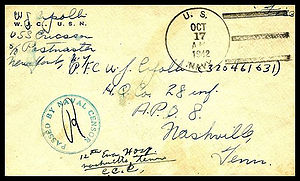 W.J. Cipolli
W.C. U.S.N.
USS Ericsson
c/o Postmaster
New York N.Y.
U. S.
OCT
17
A.M.
1942
NAVY
P.F.C. W.J. Cipolli (32046631)
H.Q. Co. 28 inf
A.P.O. 8.
Nashville,
Tenn.
PASSED BY NAVAL CENSOR
12th Evac Hosp
Nashville, Tenn